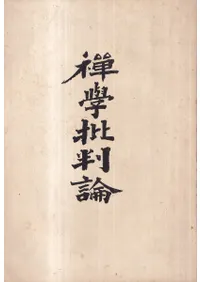 禪學批判論